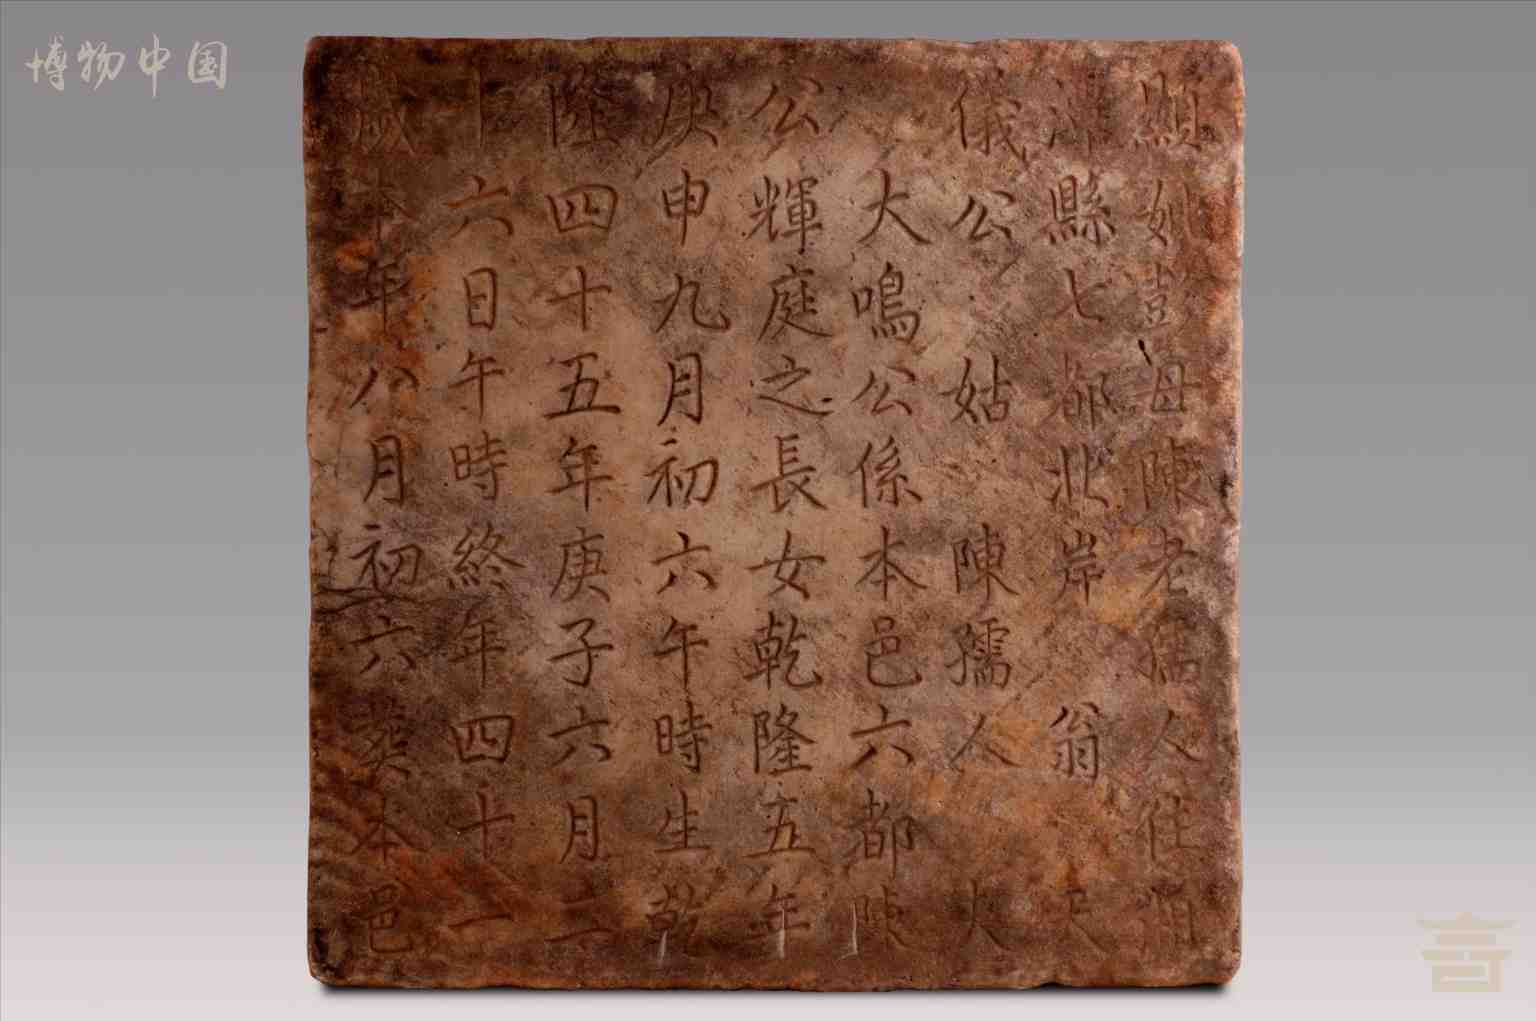 博物中国
顯妣彭母陳老孺人往浦
浦縣七都北岸 翁 天
儀公 姑 陳孺人 大
大鳴公係本邑六都陳
公輝庭之長女乾隆五年
庚申九月初六午時生乾
隆四十五年庚子六月二
十六日午時終年四十一
歲本年八月初六葬本邑